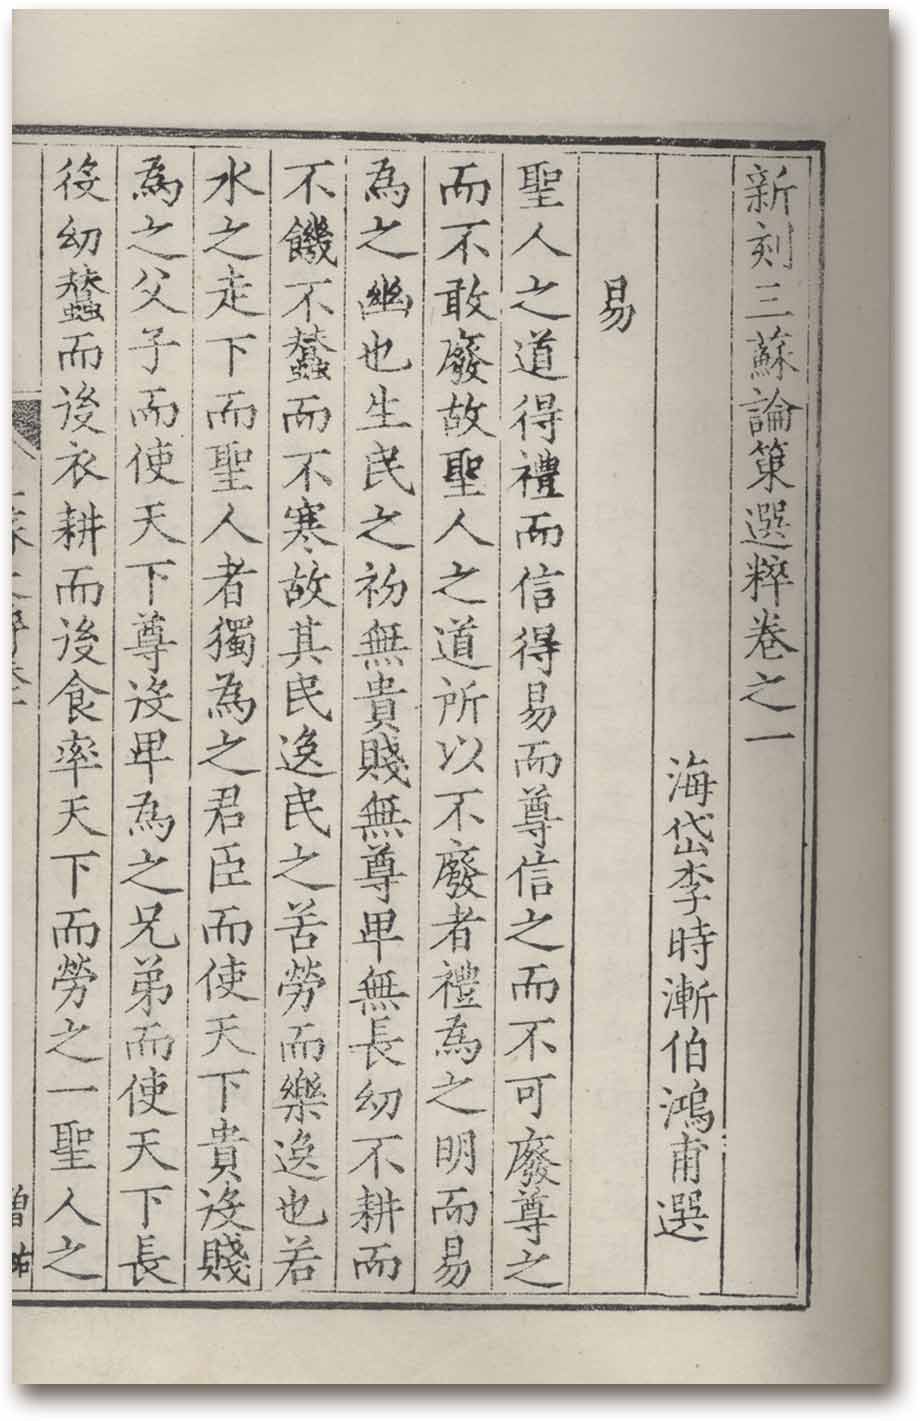 新刻三蘇論䇿選粹卷之一
海岱李時漸伯鴻甫選
易
聖人之道得禮而信得易而尊信之而不可廢尊之
而不敢廢故聖人之道所以不廢者禮為之明而易
為之幽也生民之初無貴賤無尊卑無長幼不耕而
不饑不蠶而不寒故其民逸民之苦勞而樂逸也若
水之走下而聖人者獨為之君臣而使天下貴役賤
為之父子而使天下尊役卑為之兄弟而使天下長
役幼蠶而後衣耕而後食率天下而勞之一聖人之